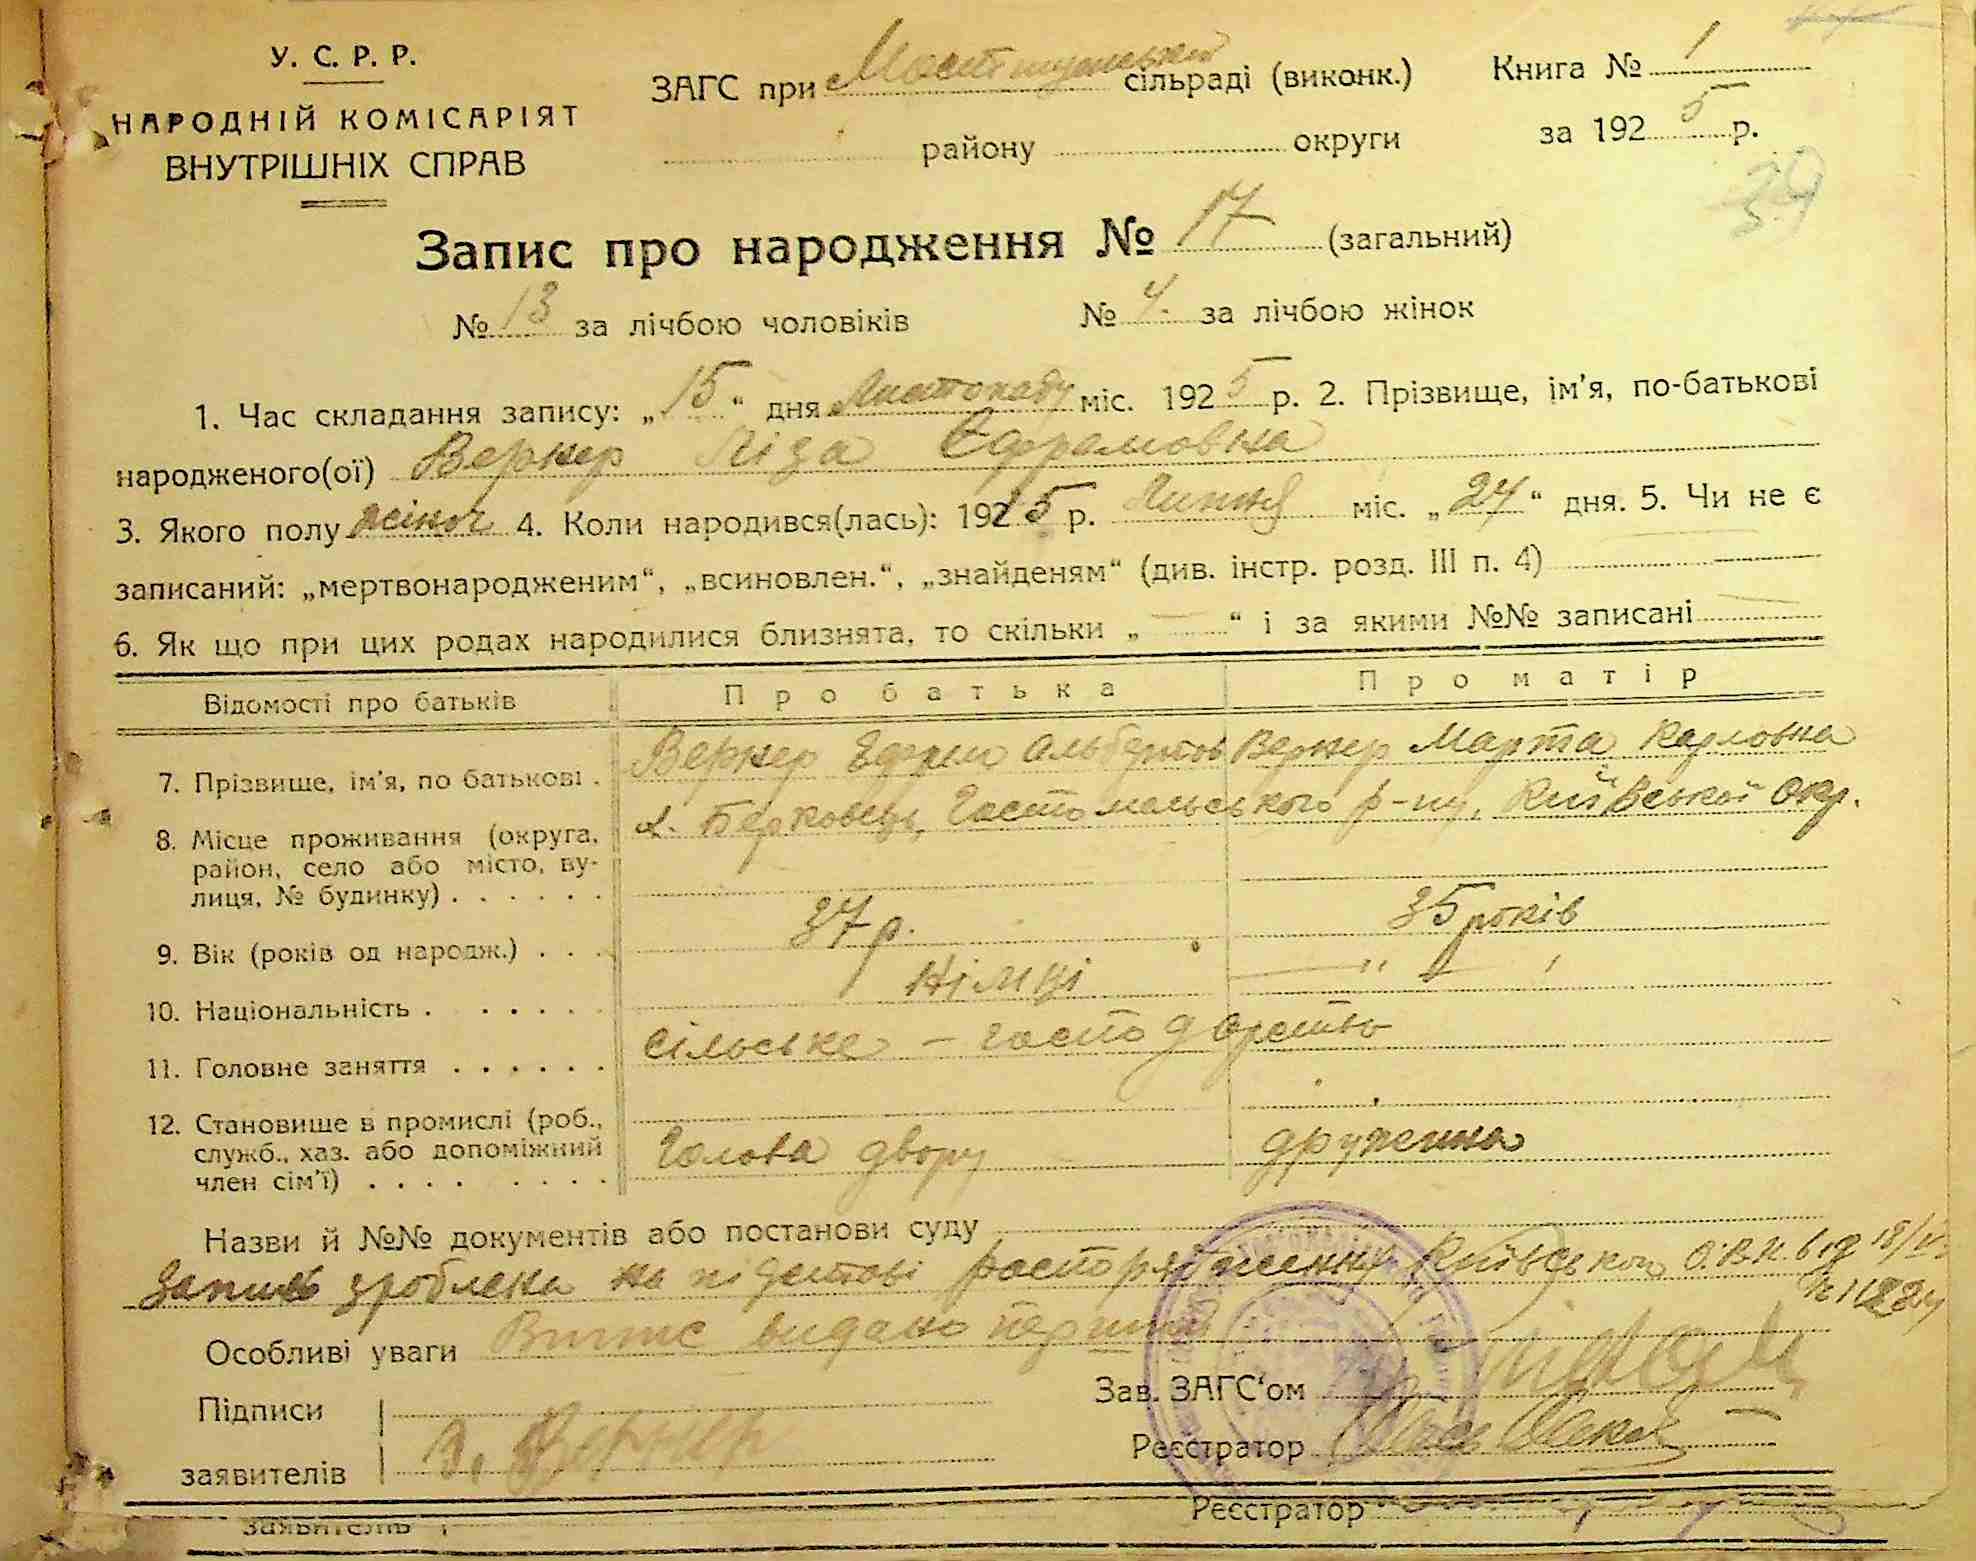 У. С. Р. Р.
НАРОДНІЙ КОМІСАРІЯТ
ВНУТРІШНІХ СПРАВ
ЗАГС при сільраді (виконк.)
району округи
Книга № 1
за 1925 р.
39
Запис про народження № 17 (загальний)
№ 13 за лічбою чоловіків № 4. за лічбою жінок
1. Час складання запису: „15“ дня Листопаду міс. 1925 р. 2. Прізвище, ім'я, по-батькові
народженого(ої) Вернер Ліза Ефремовна
3. Якого полу жіноч 4. Коли народився(лась): 1925 р. Липня міс. „24“ дня. 5. Чи не є
записаний: „мертвонародженим“, „всиновлен.“, „знайденям“ (див. інстр. розд. III п. 4)
6. Як що при цих родах народилися близнята, то скільки „ — “ і за якими №№ записані —
Відомості про батьків Про батька Про матір
7. Прізвище, ім'я, по батькові . Вернер Ефрем Альбертов Вернер Марта Карловна
8. Місце проживання (округа, район, село або місто, вулиця, № будинку) . . . . . . Берковець, Гостомельського р-ну, Київської Окр.
9. Вік (років од народж.) . . . 37 р. 35 років
10. Національність . . . . . . Німці — " —
11. Головне заняття . . . . . . сільське – господарство
12. Становище в промислі (роб., служб., хаз. або допоміжний член сім'ї) . . . . . . . . Голова двору дружина
Назви й №№ документів або постанови суду
Запись зроблена на підставі распоряження Київського О.В.К. від 18/
Особливі уваги Витяг видано
Підписи
заявителів Вернер
Зав. ЗАГС'ом
Реєстратор
Реєстратор
Заявитель